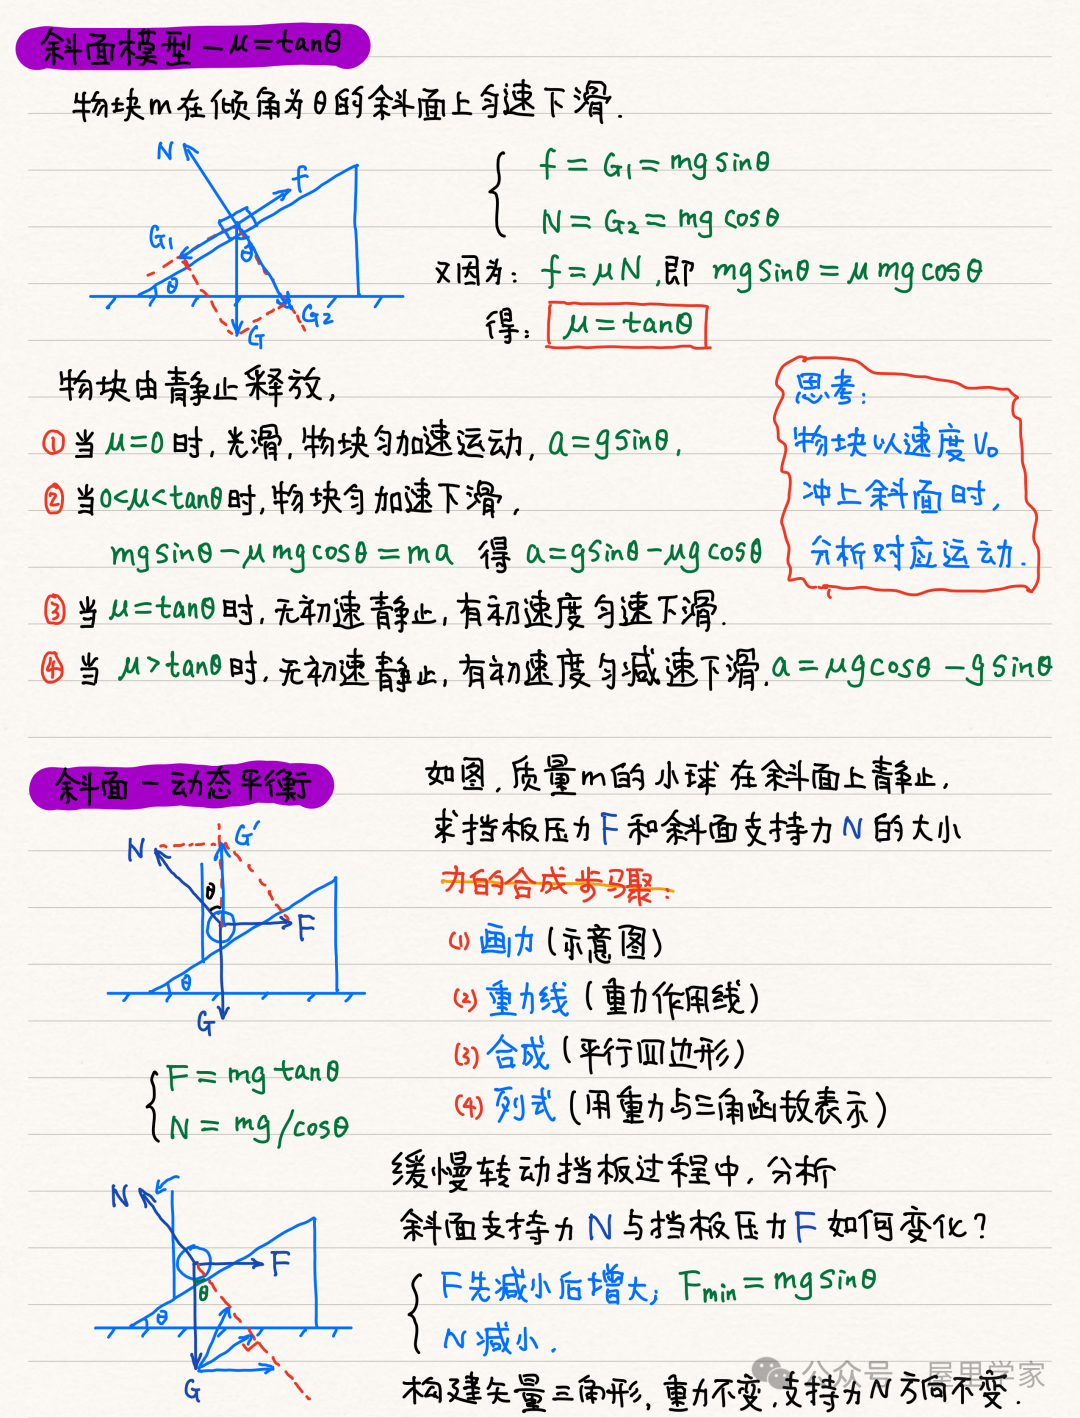 斜面模型－μ=tanθ
物块m在倾角为θ的斜面上匀速下滑.
N
f
G₁
θ
θ
G₂
G
f = G₁ = mg sinθ
N = G₂ = mg cosθ
又因为: f = μN, 即 mg sinθ = μ mg cosθ
得: μ = tanθ
物块由静止释放,
① 当 μ=0 时, 光滑, 物块匀加速运动, a=g sinθ,
② 当 0<μ<tanθ 时, 物块匀加速下滑,
mg sinθ - μ mg cosθ = ma 得 a=g sinθ - μg cosθ
③ 当 μ=tanθ 时, 无初速静止, 有初速度匀速下滑.
④ 当 μ>tanθ 时, 无初速静止, 有初速度匀减速下滑. a = μg cosθ - g sinθ
思考:
物块以速度V₀
冲上斜面时,
分析对应运动.
斜面－动态平衡
如图, 质量m的小球在斜面上静止,
求挡板压力F和斜面支持力N的大小
力的合成步骤:
(1) 画力 (示意图)
(2) 重力线 (重力作用线)
(3) 合成 (平行四边形)
(4) 列式 (用重力与三角函数表示)
N
G'
θ
F
θ
G
F = mg tanθ
N = mg/cosθ
缓慢转动挡板过程中, 分析
斜面支持力N与挡板压力F如何变化?
F先减小后增大; Fmin = mg sinθ
N减小.
构建矢量三角形, 重力不变, 支持力N方向不变.
N
F
θ
θ
G
公众号·屋里学家